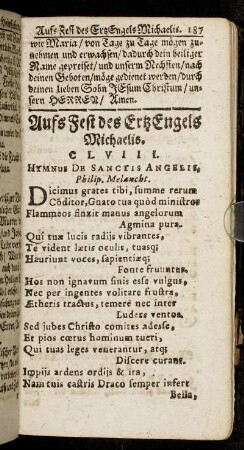 Auffs Fest des ErtzEngels Michaelis. 187
wie Maria / von Tage zu Tage mögen zu-
nehmen und erwachsen / dadurch dein heiliger
Name gepreiset / und unserm Nechsten / nach
deinen Geboten / möge gedienet werden / durch
deinen lieben Sohn JEsum Christum / un-
sern HERREN / Amen.
Auffs Fest des ErtzEngels
Michaelis.
CLVIII.
HYMNUS DE SANCTIS ANGELIS,
Philip. Melancht.
Dicimus grates tibi, summe rerum
Cõditor, Gnato tua quòd ministros
Flammeos finxit manus angelorum
Agmina pura.
Qui tuæ lucis radijs vibrantes,
Te vident lætis oculis, tuasq;
Hauriunt voces, sapientiæq;
Fonte fruuntur.
Hos non ignavum sinis esse vulgus,
Nec per ingentes volitare frustra,
Ætheris tractus, temerè nec inter
Ludere ventos.
Sed jubes Christo comites adesse,
Et pios cœtus hominum tueri,
Qui tuas leges venerantur, atq;
Discere curant.
Impijs ardens odijs & ira,
Nam tuis castris Draco semper infert
Bella,